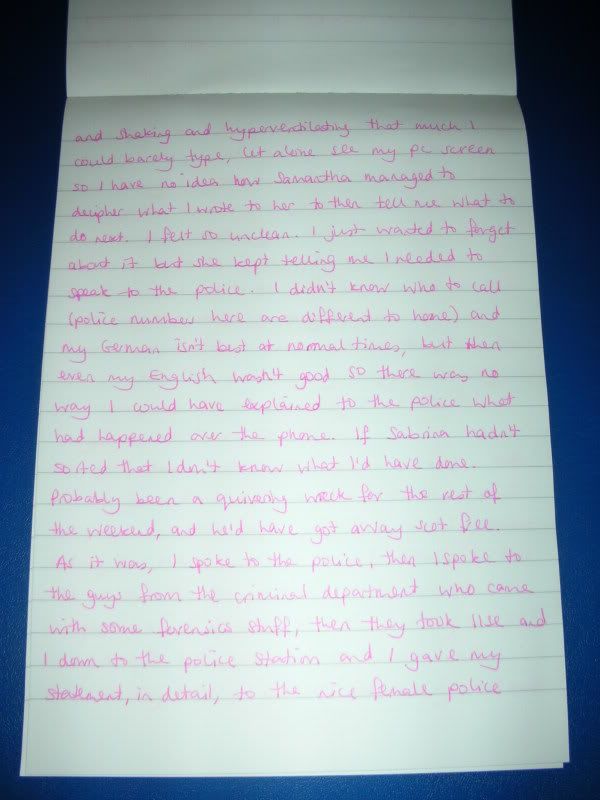 and shaking and hyperventilating that much I
could barely type, let alone see my pc screen
so I have no idea how Samantha managed to
decipher what I wrote to her to then tell me what to
do next. I felt so unclean. I just wanted to forget
about it but she kept telling me I needed to
speak to the police. I didn't know who to call
(police number here are different to home) and
my German isn't best at normal times, but then
even my English wasn't good so there was no
way I could have explained to the police what
had happened over the phone. If Sabrina hadn't
sorted that I don't know what I'd have done.
Probably been a quivering wreck for the rest of
the weekend, and he'd have got away scot free.
As it was, I spoke to the police, then I spoke to
the guys from the criminal department who came
with some forensics stuff, then they took Ilse and
I down to the police station and I gave my
statement, in detail, to the nice female police